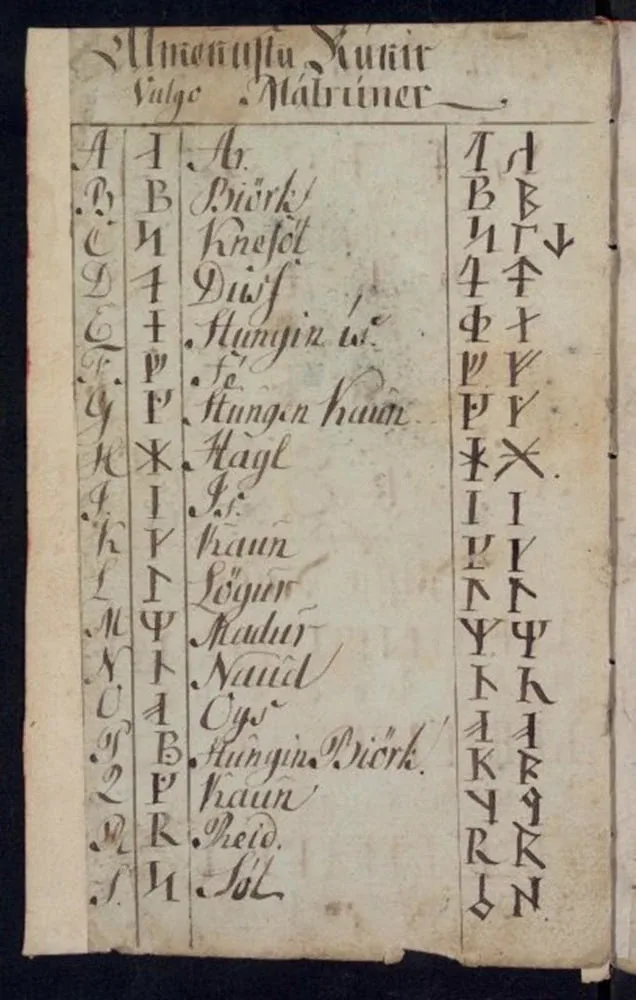 Almenustu Rúnir
Vulgo Málrúner
A ᛆ Ar. ᛆ ᛆ
B ᛒ Biörk ᛒ ᛒ
C ᛋ Knesól ᛋ ᛚ ↓
D ᛏ Duss ᛏ ᛏ
E ᚽ Stungin ís. ᛄ ᚽ
F. ᚠ Fé ᚠ ᚠ
G ᚵ Stungen Kaun ᚵ ᚴ
H ᚼ Hagl ᚼ ᚼ.
I. ᛁ Is. ᛁ ᛁ
K ᚴ Kaun ᚴ ᚴ
L ᛚ Lögur ᛚ ᛚ
M ᛘ Madur ᛘ ᛘ
N ᚿ Naud ᚿ
O ᚮ Oys ᚮ ᚮ
P ᛒ Stungin Biörk. K
Q ᚵ Kaun
R ᚱ Reid. ᚱ ᚱ
S. ᛋ Sól